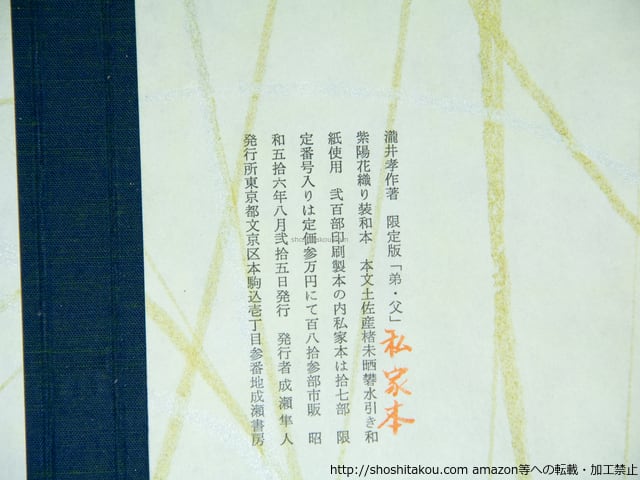 瀧井孝作著　限定版「弟・父」
紫陽花織り装和本　本文土佐産楮未晒礬水引き和
紙使用　弐百部印刷製本の内私家本は拾七部　限
定番号入りは定価参万円にて百八拾参部市販　昭
和五拾六年八月弐拾五日発行　発行者成瀬隼人
発行所東京都文京区本駒込壱丁目参番地成瀬書房
私家本
shoshitakou.com
http://shoshitakou.com amazon等への転載・加工禁止